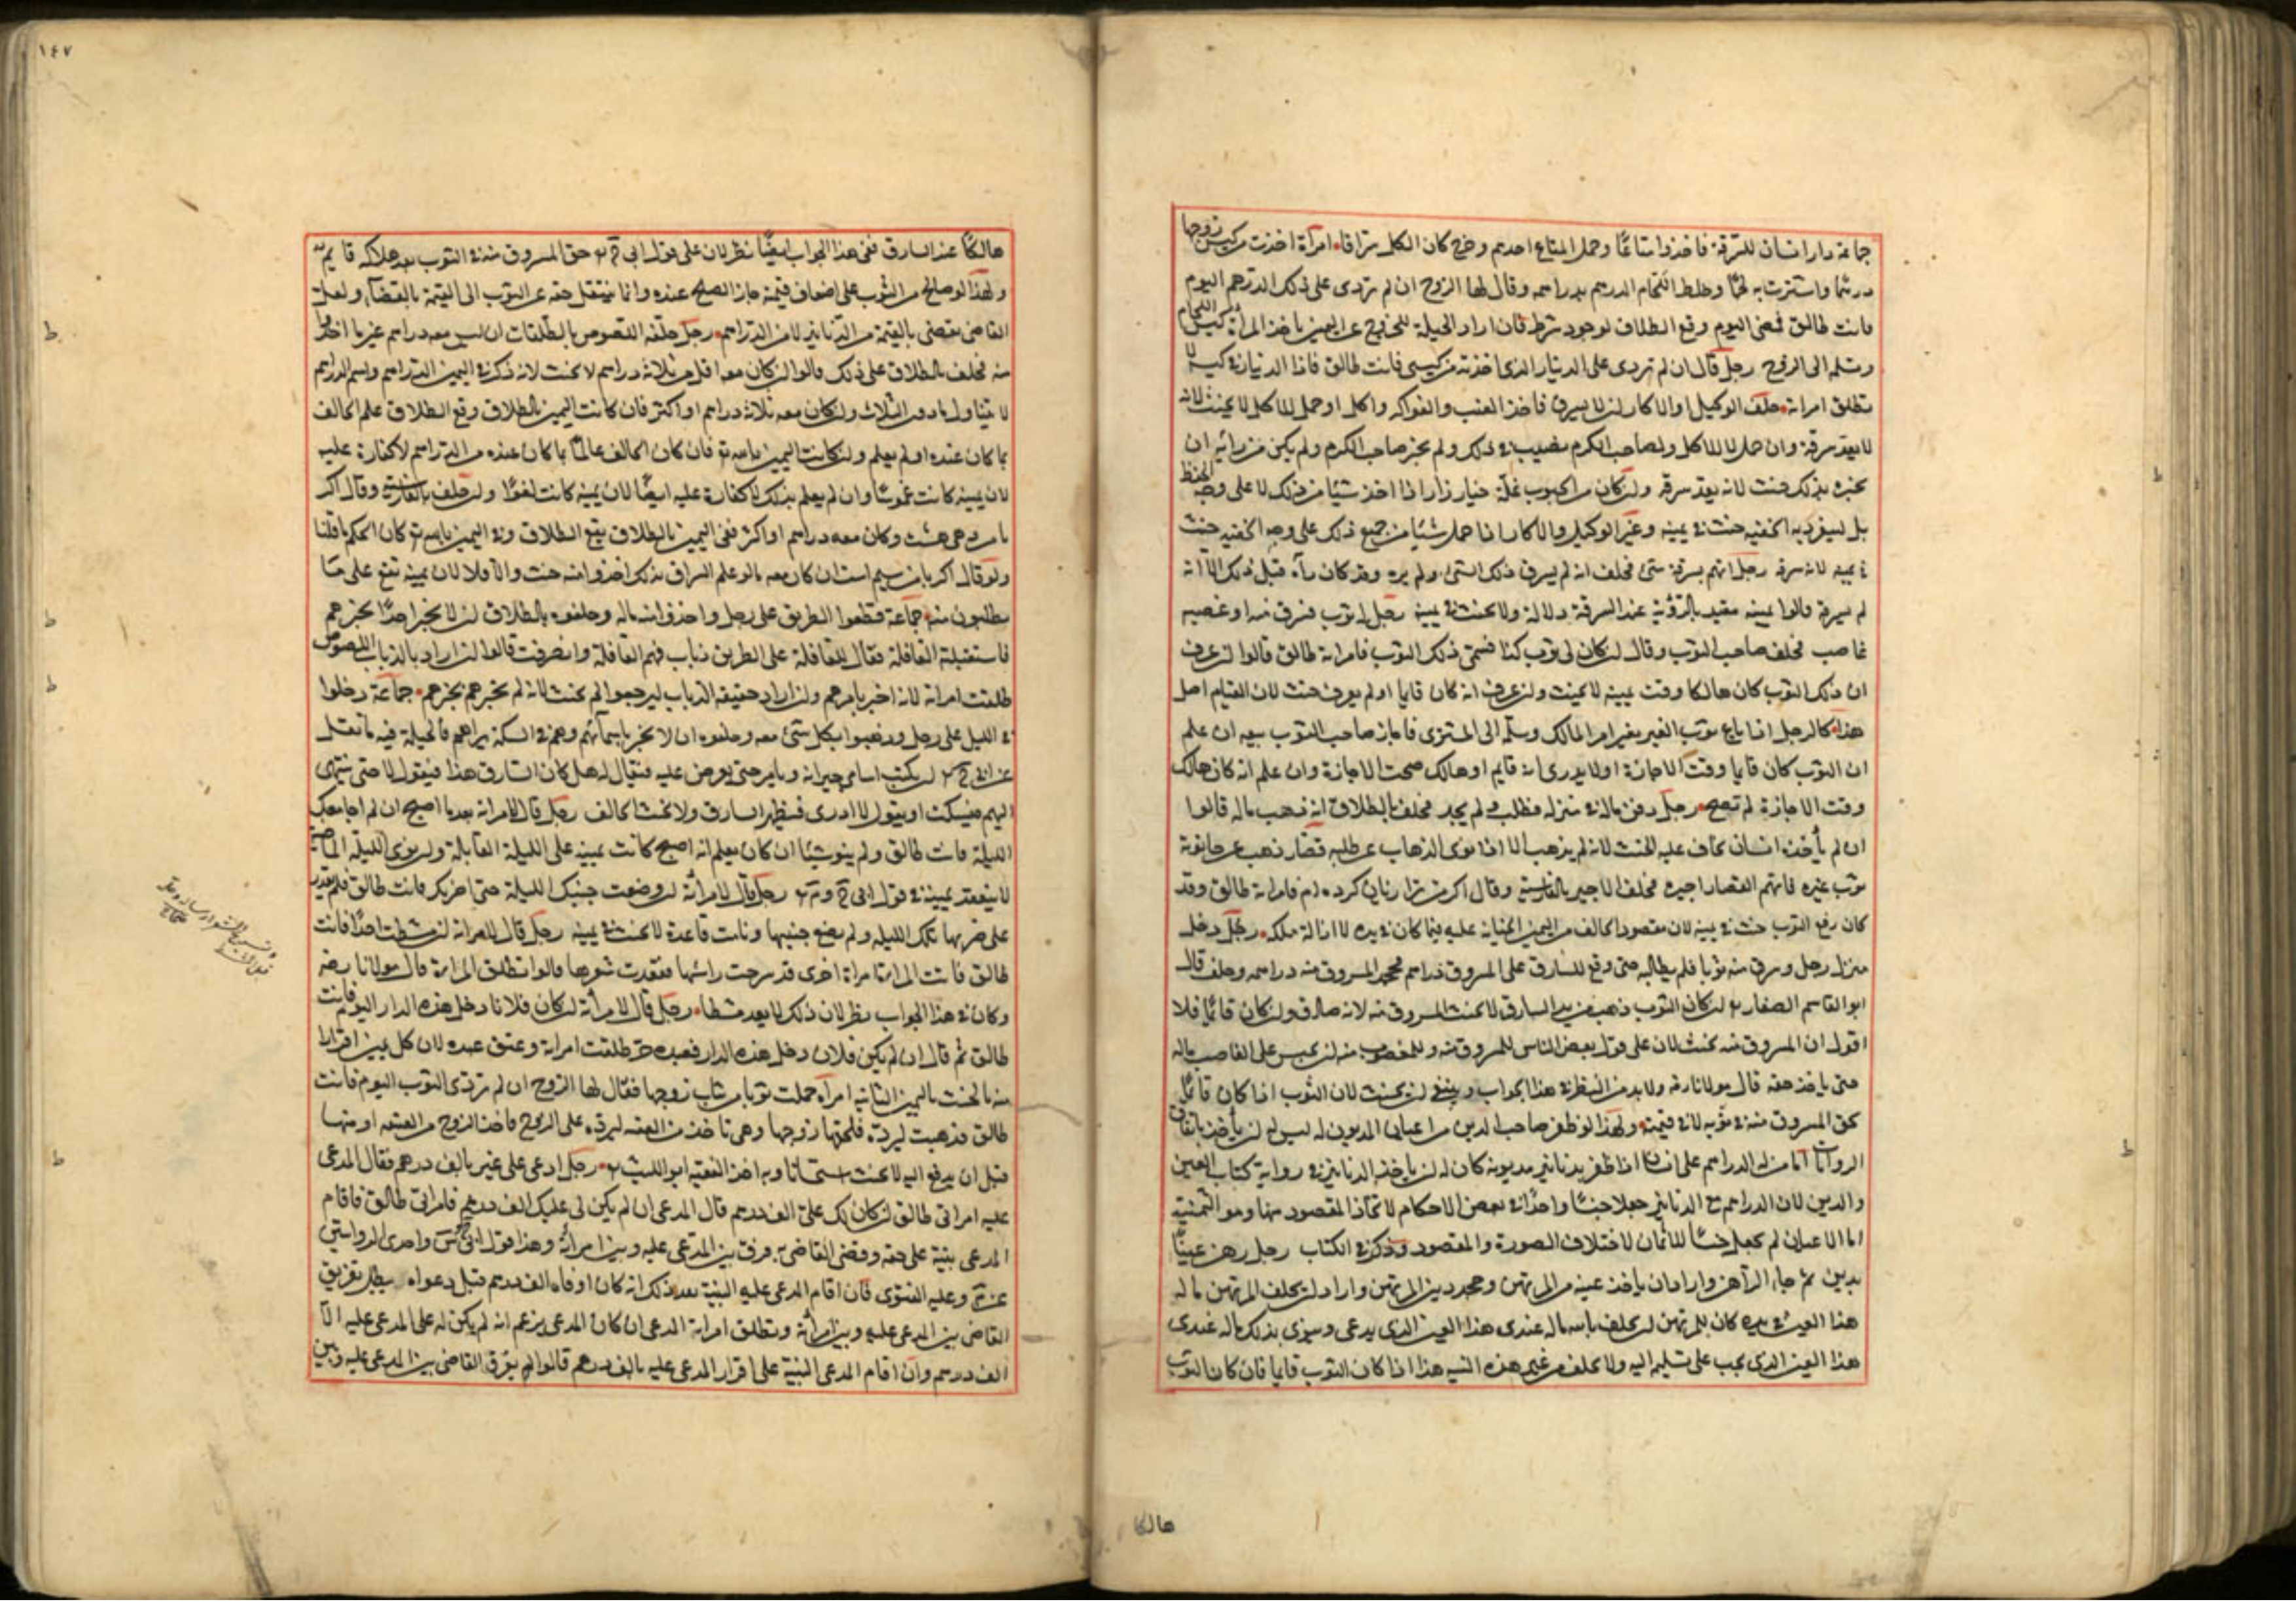 جماعة دار انسان للسرقة فاخذوا متاعًا وحمل المتاع احدهم وخرج كان الكل سراقا امرأة اخذت من كيس زوجها
درهمًا واشترت به لحمًا وخلط اللحام الدرهم بدراهمه وقال لها الزوج ان لم تردى على ذلك الدرهم اليوم
فانت طالق فمضى اليوم وقع الطلاق لوجود شرطه فان اراد الحيلة للخروج عن اليمين ياخذ المرأة كيس اللحام
وتسلمه الى الزوج رجل قال ان لم تردى على الدينار الذى اخذته من كيسى فانت طالق فاذا الدينار فى كيسه لا
تطلق امراته حلف الوكيل والاكار ان لا يسرق فاخذ العنب والفواكه واكل او حمل للاكل لا يحنث لانه
لا يعد سرقة وان حمل لا للاكل ولصاحب الكرم نصيب فى ذلك ولم يخبر صاحب الكرم ولم يكن من رأيه ان
يخبره بذلك حنث لانه يعد سرقة وان كان من الحبوب غلة اذا اخذ شيئا من ذلك لا على وجه الحفظ
بل لينفرد به الخفية حنث فى يمينه وغير الوكيل والاكار اذا حمل شيئا من جميع ذلك على وجه الخفية حنث
فى يمينه لانه سرقة رجل اتهم بسرقة شئ فحلف انه لم يسرق ذلك الشئ ولم يره وقد كان رآه قبل ذلك الا انه
لم يسرقه قالوا يمينه مقيد بالرؤية عند السرقة دلالة ولا يحنث فى يمينه رجل له ثوب فسرق منه او غصبه
غاصب فحلف صاحب الثوب وقال ان كان لى ثوب كذا فسمى ذلك الثوب فامراته طالق قالوا ان عرف
ان ذلك الثوب كان هالكا وقت يمينه لا يحنث وان عرف انه كان قايما او لم يعرف حنث لان القيام اصل
هذا كالرجل اذا باع ثوب الغير بغير امر المالك وسلمه الى المشترى فاجاز صاحب الثوب بيعه ان علم
ان الثوب كان قايما وقت الاجازة او لا يدرى انه قايم او هالك صحت الاجازة وان علم انه كان هالك
وقت الاجازة لم تصح رجل دفن ماله فى منزله فطلبه ولم يجد فحلف بالطلاق انه ذهب ماله قالوا
ان لم يأخذه انسان يخاف عليه الحنث لانه لم يذهب الا اذا نوى الذهاب عن طلبه قصار ذهب عن حانوته
ثوب غيره فاتهم القصار اجيره فحلف الاجير بالفارسية وقال اكر من ترا زيانى كرده ام فامراته طالق وقد
كان رفع الثوب حنث فى يمينه لان مقصود الحالف من اليمين الخيانة عليه فيما كان فى يده لا ازالة ملكه رجل دخل
منزل رجل وسرق منه ثوبا فلم يطالبه حتى وقع للسارق على المسروق دراهم فجحد المسروق منه دراهمه وحلف قال
ابو القاسم الصفار ان كان الثوب ذهب من يد السارق لا يحنث المسروق منه لانه صادق وان كان قائمًا فلا
اقول ان المسروق منه يحنث لان على قول بعض الناس للمسروق منه وللمغصوب منه ان يحبس على الغاصب ماله
حتى يأخذ حقه قال مولانا رضه ولا بد من النظر فى هذا الجواب وينبغى ان يحنث لان الثوب اذا كان قائمًا
فحق المسروق منه فى ثوبه لا فى قيمته ولهذا لو ظفر صاحب الدين من اعيان المديون له ليس له ان يأخذ باتفاق
الروايات اما من له الدراهم على انسان اذا ظفر بدنانير مديونه كان له ان ياخذ الدنانير فى رواية كتاب العين
والدين لان الدراهم مع الدنانير جعلا جنسًا واحدًا فى بعض الاحكام لاتحاد المقصود منها وهو الثمنية
اما الاعيان لم يجعل جنسًا للاثمان لاختلاف الصورة والمقصود وذكر فى الكتاب رجل رهن عينًا
بدين ثم جاء الراهن واراد ان ياخذ عينه من المرتهن وجحد دين المرتهن واراد ان يحلف المرتهن ماله
هذا العين فى يده كان للمرتهن ان يحلف بالله ماله عندى هذا العين الذى يدعى وينوى بذلك ماله عندى
هذا العين الذى يجب على تسليمه اليه ولا يحلف من غير هذه النية هذا اذا كان الثوب قايما فان كان الثوب
هالكا
١٤٧
هالكًا عند السارق ففى هذا الجواب ايضًا نظر لان على قول ابى ح حق المسروق منه فى الثوب بعد هلاكه قايم
ولهذا لو صالح من الثوب على اضعاف قيمته جاز الصلح عنده وانما ينتقل حقه عن الثوب الى القيمة بالقضاء ولعل
القاضى يقضى بالقيمة من الدنانير لا من الدراهم رجل حلفه اللصوص بالطلقات ان ليس معه دراهم غير ما اخذوا
منه فحلف بالطلاق على ذلك قالوا ان كان معه اقل من ثلاثة دراهم لا يحنث لانه ذكر فى اليمين الدراهم واسم الدراهم
لا يتناول ما دون الثلاث وان كان معه ثلاثة دراهم او اكثر فان كانت اليمين بالطلاق وقع الطلاق علم الحالف
بما كان عنده او لم يعلم وان كانت اليمين بالله تع فان كان الحالف عالمًا بما كان عنده من الدراهم لا كفارة عليه
لان يمينه كانت غموسًا وان لم يعلم بذلك لا كفارة عليه ايضًا لان يمينه كانت لغوًا وان حلف بالفارسية وقال اكر
بامن درهمى هست وكان معه دراهم او اكثر ففى اليمين بالطلاق يقع الطلاق وفى اليمين بالله تع كان الحكم ما قلنا
ولو قال اكر بامن سيم است ان كان معه مالو علم السراق بذلك اخذوا منه حنث والا فلا لان يمينه تقع على ما
يطلبون منه جماعة قطعوا الطريق على رجل واخذوا منه ماله وحلفوه بالطلاق ان لا يخبر احدًا بخبرهم
فاستقبلته القافلة فقال للقافلة على الطريق ذياب ففهم القافلة وانصرفت قالوا ان اراد بالذياب اللصوص
طلقت امراته لانه اخبر بامرهم وان اراد حقيقة الذياب ليرجعوا لم يحنث لانه لم يخبرهم بخبرهم جماعة دخلوا
فى الليل على رجل وذهبوا بكل شئ معه وحلفوه ان لا يخبر باسمائهم وهم فى السكة يراهم فالحيلة فيه ما نقل
عن ابى ح ان يكتب اسامى جيرانه ويامر حتى يعرض عليه فيقال له هل كان السارق هذا فيقول لا حتى ينتهى
اليهم فيسكت او يقول لا ادرى فيظهر السارق ولا يحنث الحالف رجل قال لامراته بعد ما اصبح ان لم اجامعك
الليلة فانت طالق ولم ينو شيئا ان كان يعلم انه اصبح كانت يمينه على الليلة القابلة وان نوى الليلة الماضية
لا ينعقد يمينه فى قول ابى ح وم رجل قال لامرأته ان وضعت جنبك الليلة حتى اضربك فانت طالق فلم يقدر
على ضربها تلك الليلة ولم يضع جنبيها ونامت قاعدة لا يحنث فى يمينه رجل قال لامراته ان مشطت احدًا فانت
طالق فاتت المراة امراة اخرى قد سرحت رأسها فعقدت شعرها قالوا تطلق المراة قال مولانا رضه
وكان فى هذا الجواب نظر لان ذلك لا يعد مشطا رجل قال لامرأته ان كان فلانا دخل هذه الدار اليوم فانت
طالق ثم قال ان لم يكن فلان دخل هذه الدار فعبده حر طلقت امراته وعتق عبده لان كل يمين اقرارا
منه بالحنث باليمين الثانية امرأة حملت ثوبا من ثياب زوجها فقال لها الزوج ان لم تردى الثوب اليوم فانت
طالق فذهبت ليرده فلحقها زوجها وهى تاخذ من ليرده على الزوج فاخذ الزوج من او منها
قبل ان يدفع اليه لا يحنث استحسانا وبه اخذ الفقيه ابو الليث رجل ادعى على غيره بالف درهم فقال المدعى
عليه امراتى طالق ان كان لك على الف درهم قال المدعى ان لم يكن لى عليك الف درهم فامراتى طالق فاقام
المدعى بينة على حقه وقضى القاضى به فرق بين المدعى عليه وبين امرأته وهذا قول ابى س واحدى الروايتين
عن م وعليه الفتوى فان اقام المدعى عليه البينة بعد ذلك انه كان اوفاه الف درهم قبل دعواه يبطل تفريق
القاضى بين المدعى عليه وبين امرأته وتطلق امراة المدعى ان كان المدعى يزعم انه لم يكن له على المدعى عليه الا
الف درهم وان اقام المدعى البينة على اقرار المدعى عليه بالف درهم قالوا لم يفرق القاضى بين المدعى عليه وبين